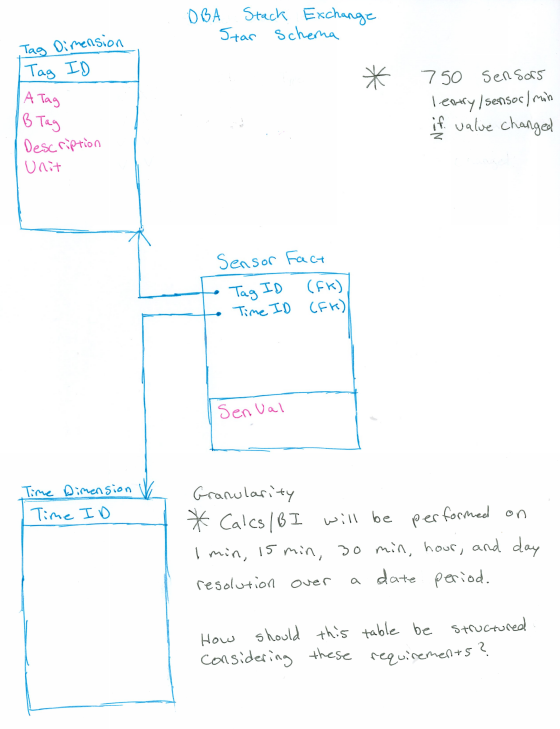 DBA Stack Exchange
Star Schema
Tag Dimension
Tag ID
A Tag
B Tag
Description
Unit
* 750 Sensors
1 entry/sensor/min
if value changed
Sensor Fact
Tag ID (FK)
Time ID (FK)
Sen Val
Time Dimension
Time ID
Granularity
* Calcs/BI will be performed on
1 min, 15 min, 30 min, hour, and day
resolution over a date period.
How should this table be structured
considering these requirements?